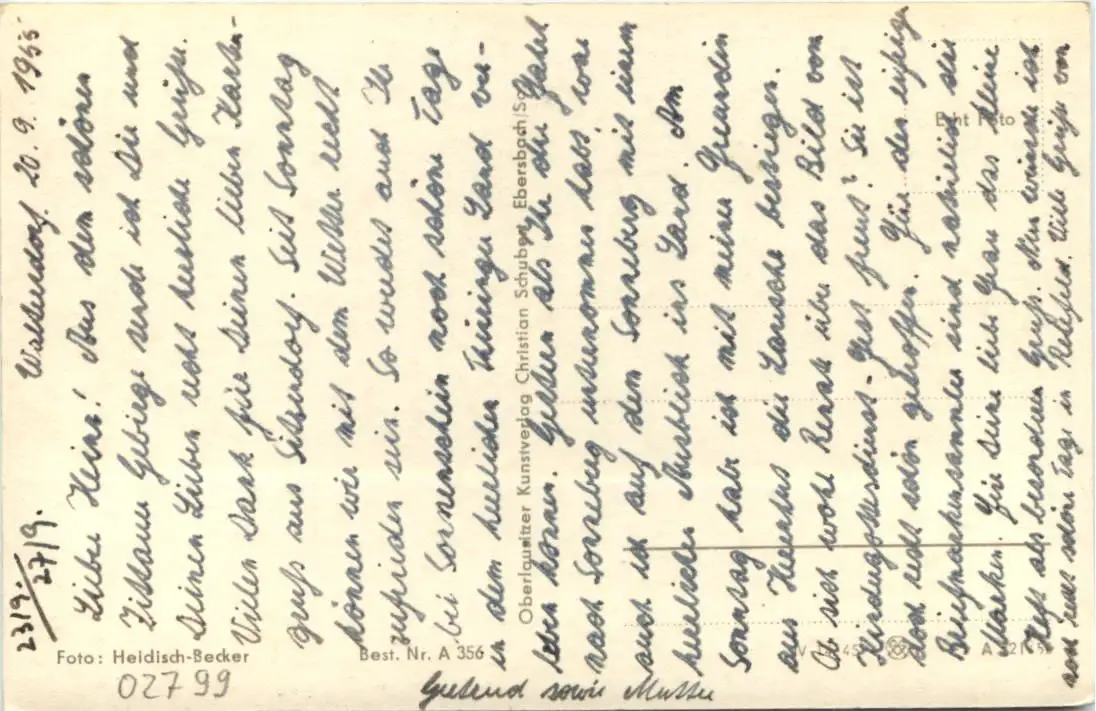 Waltersdorf, 20.9.1955
23/9.
27/9.
Lieber Heinz! Aus dem schönen
Zittauer Gebirge sende ich Dir und
Deinen Lieben recht herzliche Grüße.
Vielen Dank für Deinen lieben Karten-
gruß aus Sitzendorf. Seit Sonntag
können wir mit dem Wetter recht
zufrieden sein. So werdet auch Ihr
bei Sonnenschein noch schöne Tage
in dem herrlichen Thüringer Land ver-
leben können. Gestern als Ihr die Fahrt
nach Sonneberg unternommen habt war
auch ich auf dem Sonneberg mit einem
herrlichen Ausblick ins Land. Am
Sonntag habe ich mit meiner Freundin
aus die Lausche bestiegen.
Ob sich wohl Renate über das Bild vom
Kindergottesdienst-Fest freut? Sie ist
doch recht schön getroffen. Für den eifrigen
Briefmarkensammler sind natürlich die
Marken. Für Deine liebe Frau das kleine
Heft als besonderen Gruß. Nun wünsche ich
noch recht schöne Tage in Viele Grüße von
Gertrud sowie Mutter
Foto: Heidisch-Becker
Best. Nr. A 356
02799
Oberlausitzer Kunstverlag Christian Schubert, Ebersbach/Sa.
Echt Foto